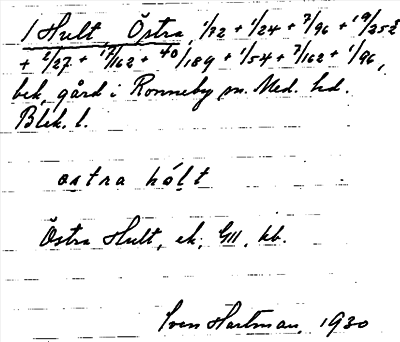 1 Hult, Östra, 1/72 + 1/24 + 7/96 + 19/252
+ 2/27 + 17/162 + 40/189 + 1/54 + 7/162 + 1/96,
bek. gård i Ronneby sn. Med. hd.
Blek. l.
östra hólt
Östra Hult, ek; GIII, kb.
Sven Hartman, 1930